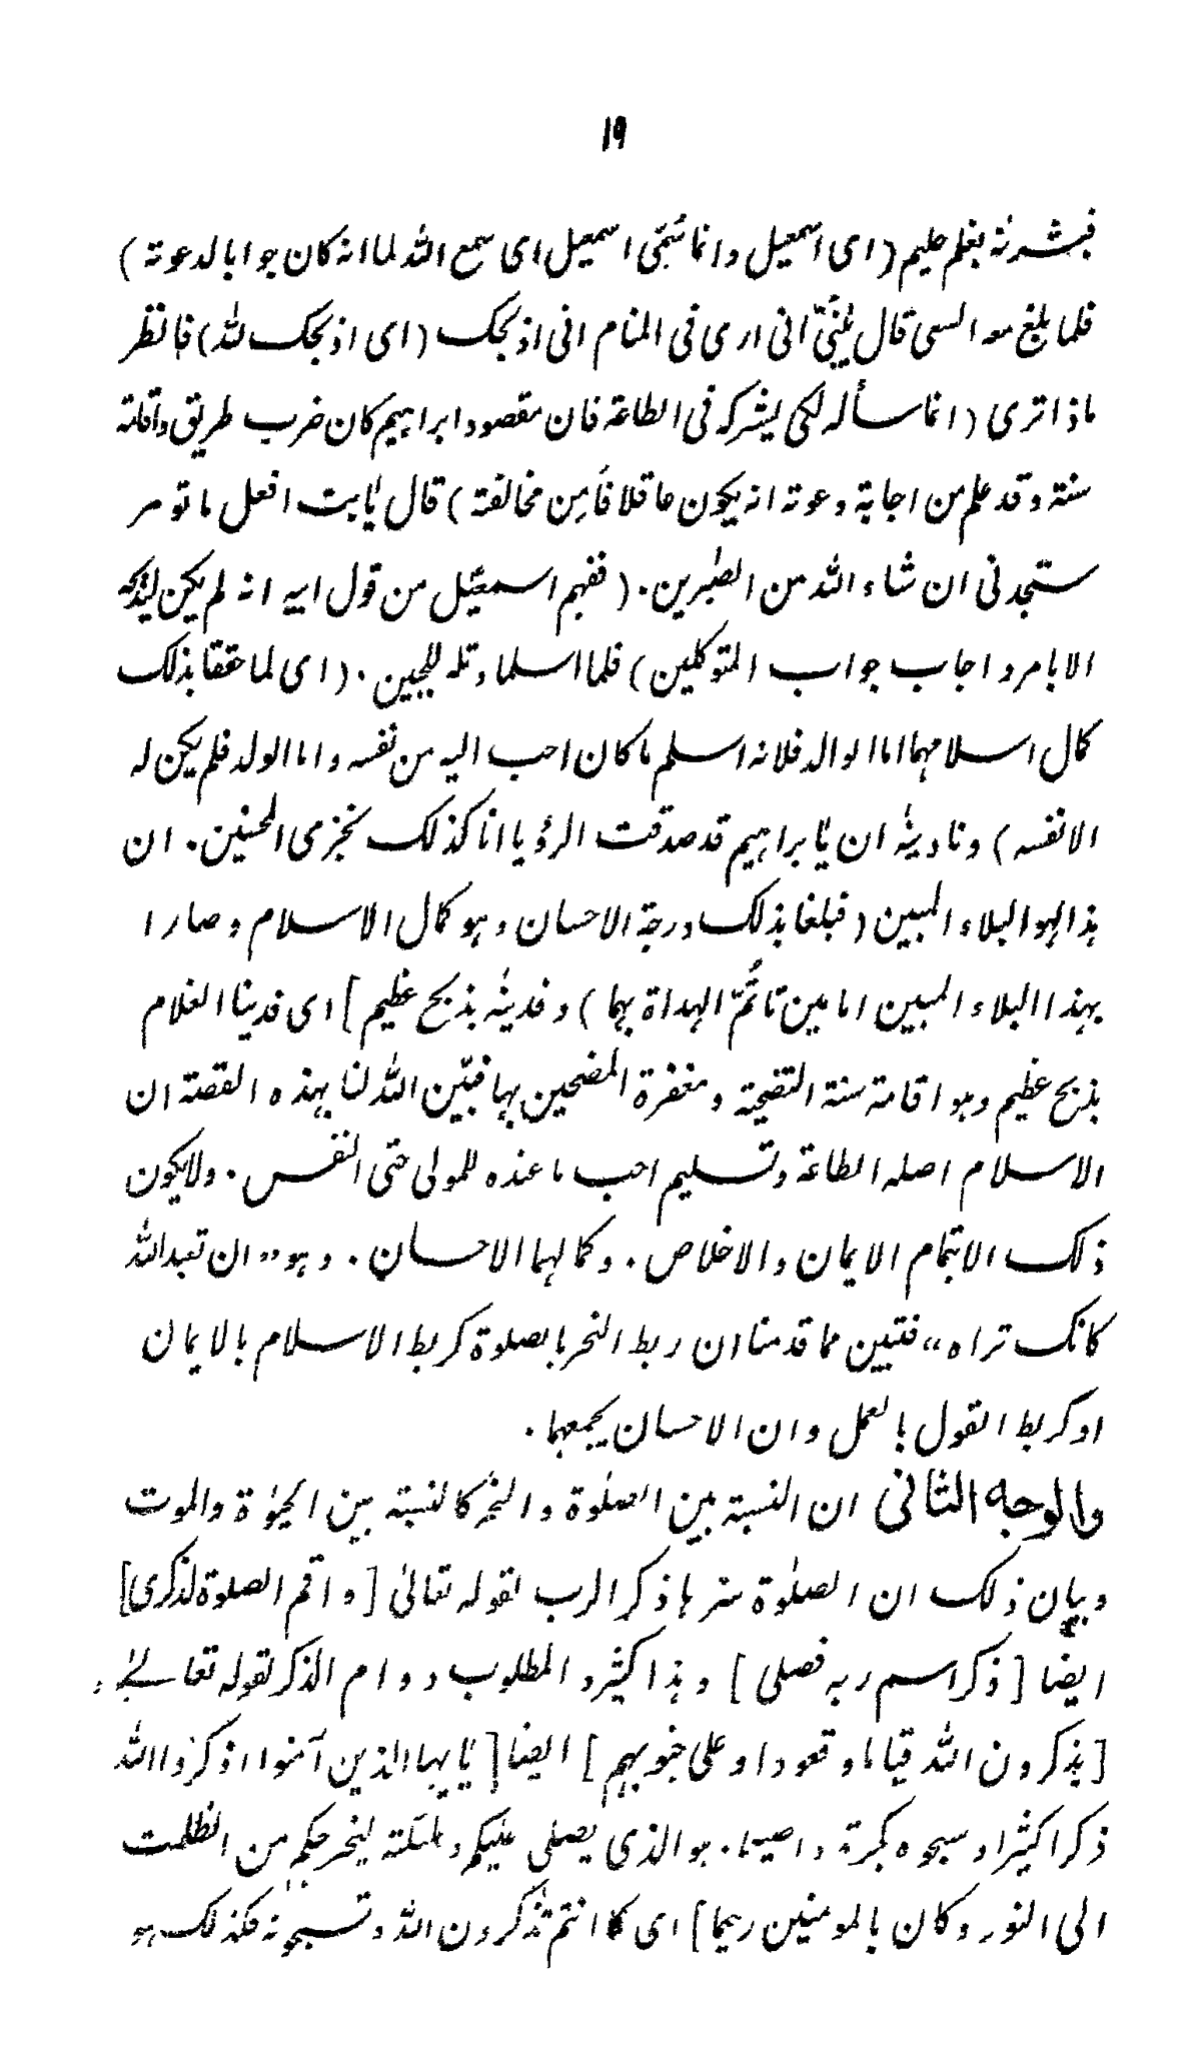 ١٩
فبشرنٰه بغلم حليم (اى اسمعيل وانما سُمّى اسمعيل اى سمع الله لما انه كان جوابا لدعوته)
فلما بلغ معه السعى قال يٰبُنَىَّ انى ارى فى المنام انى اذبحك (اى اذبحك لله) فانظر
ماذا ترى (انما سأله لكى يشركه فى الطاعة فان مقصود ابراهيم كان ضرب طريق واقامة
سنة وقد علم من اجابة دعوته انه يكون عاقلا فأمِن مخالفته) قال يٰابت افعل ما تومر
ستجدنى ان شاء الله من الصٰبرين. (ففهم اسمعيل من قول ابيه انه لم يكن ليذبحه
الا بامر واجاب جواب المتوكلين) فلما اسلما وتله للجبين. (اى لما حققا بذلك
كمال اسلامهما اما الوالد فلانه اسلم ما كان احب اليه من نفسه واما الولد فلم يكن له
الا نفسه) ونادينٰه ان يٰابراهيم قد صدقت الرؤيا انا كذلك نجزى المحسنين. ان
هذا لهو البلاء المبين (فبلغا بذلك درجة الاحسان وهو كمال الاسلام وصارا
بهذا البلاء المبين امامين تأتمّ الهداة بهما) وفدينٰه بذبح عظيم] اى فدينا الغلام
بذبح عظيم وهو اقامة سنة التضحية ومغفرة المضحين بها فبيّن الله لنا بهذه القصة ان
الاسلام اصله الطاعة وتسليم احب ما عنده للمولى حتى النفس. ولا يكون
ذلك الا بتمام الايمان والاخلاص. وكمالهما الاحسان. وهو "ان تعبد الله
كانك تراه" فتبين مما قدمنا ان ربط النحر بالصلوة كربط الاسلام بالايمان
او كربط القول بالعمل وان الاحسان يجمعهما.
والوجه الثانى ان النسبة بين الصلٰوة والنحر كالنسبة بين الحيٰوة والموت
وبيان ذلك ان الصلٰوة سرها ذكر الرب لقوله تعالىٰ [واقم الصلوة لذكرى]
ايضا [ذكر اسم ربه فصلى] وهذا كثير والمطلوب دوام الذكر لقوله تعالىٰ
[يذكرون الله قياما وقعودا وعلى جنوبهم] ايضا [يٰايها الذين آمنوا اذكروا الله
ذكرا كثيرا وسبحوه بكرة واصيلا. هو الذى يصلى عليكم وملٰئكته ليخرجكم من الظلمت
الى النور وكان بالمومنين رحيما] اى كما انتم تذكرون الله وتسبحونه فكذلك هو